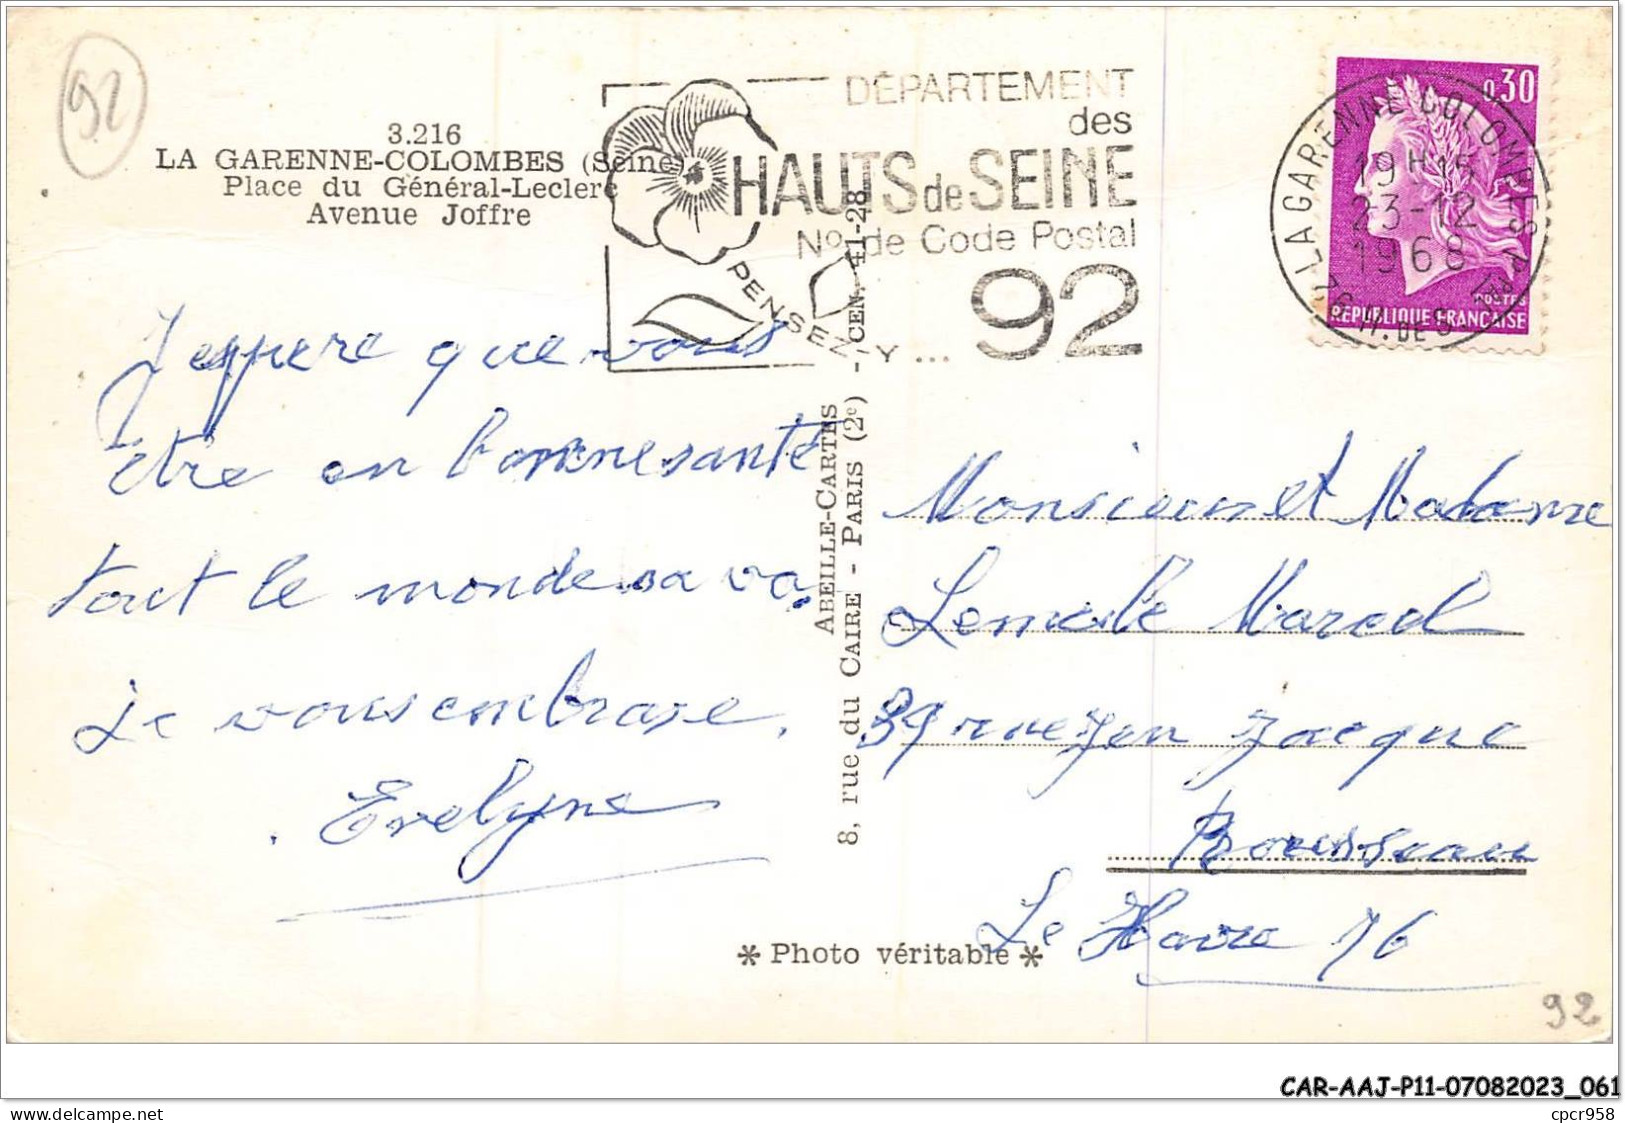 92
3.216
LA GARENNE-COLOMBES (Seine)
Place du Général-Leclerc
Avenue Joffre
DÉPARTEMENT
des
HAUTS de SEINE
No de Code Postal
92
PENSEZ-Y...
0,30
POSTES
RÉPUBLIQUE FRANÇAISE
LA GARENNE-COLOMBES PAL
19H15
23-12
1968
92 H. DE S.
J'espere que vous
etre en bonne santé
tout le monde sa va.
je vous embrase.
Evelyne
ABEILLE-CARTES
8, rue du CAIRE - PARIS (2e) - CEN. 41-28
Monsieur et Madame
Marcel
39 rue Jen Jacque
Rousseau
Le Havre 76
* Photo véritable *
92
CAR-AAJ-P11-07082023_061
www.delcampe.net
cpcr958